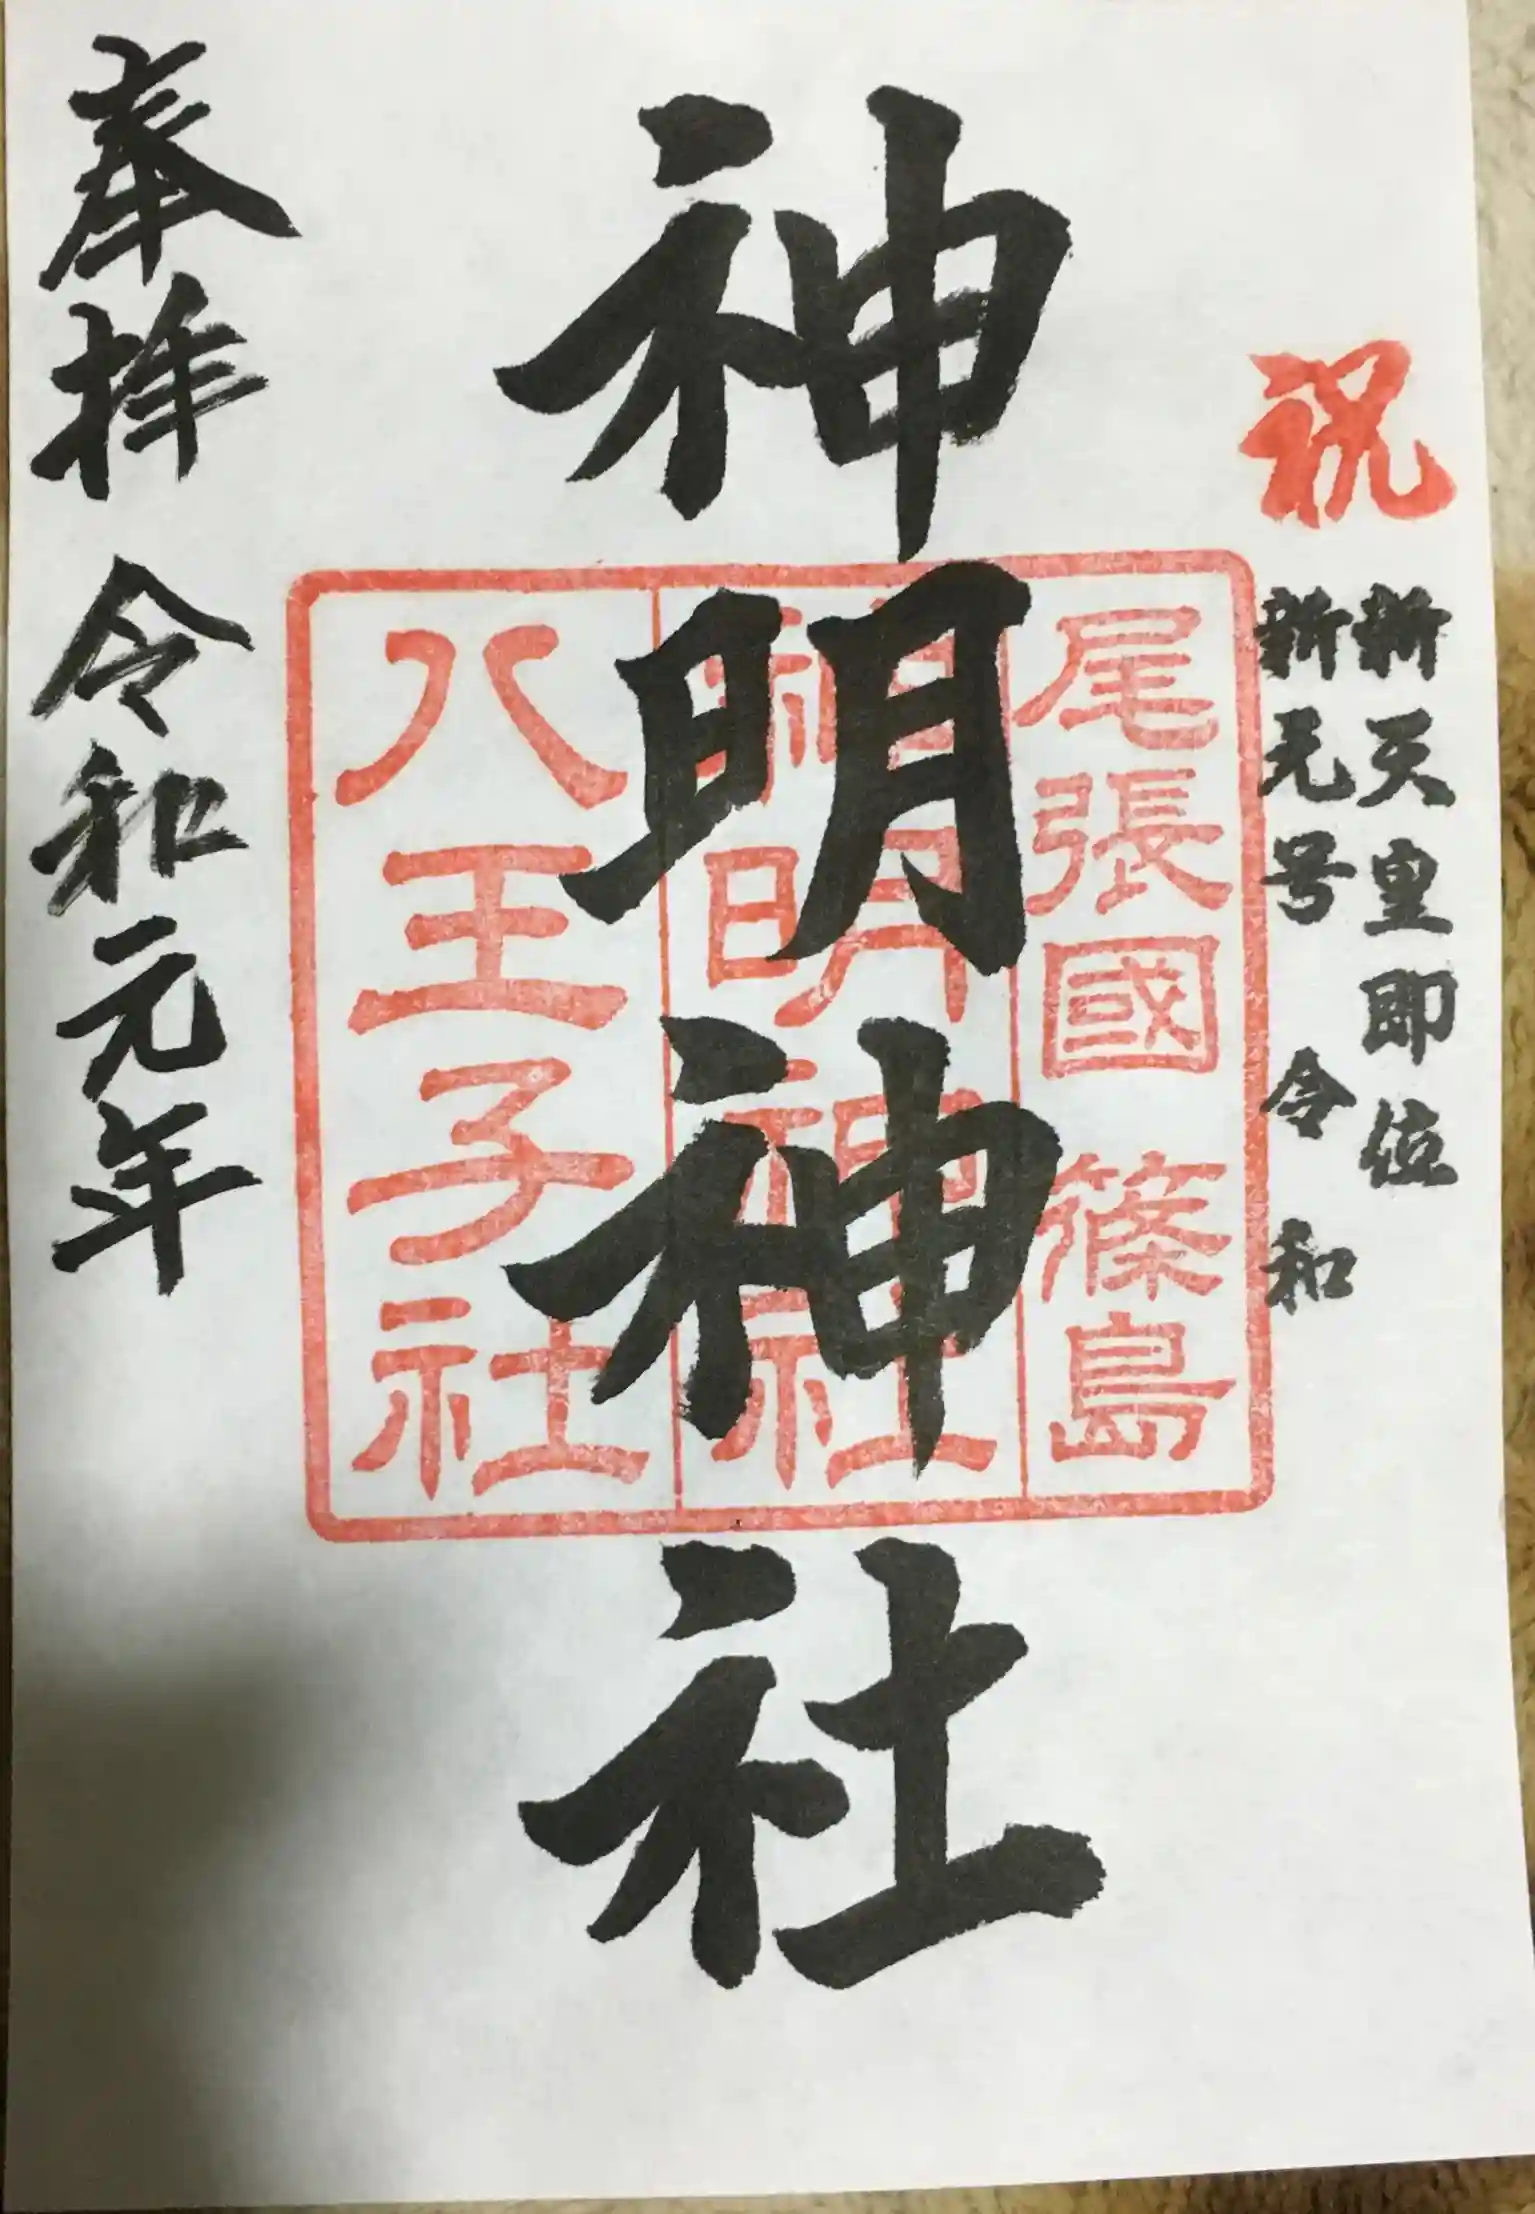 祝
新天皇即位
新元号 令和
神明神社
尾張國 篠島
神明神社
八王子社
奉拝 令和元年